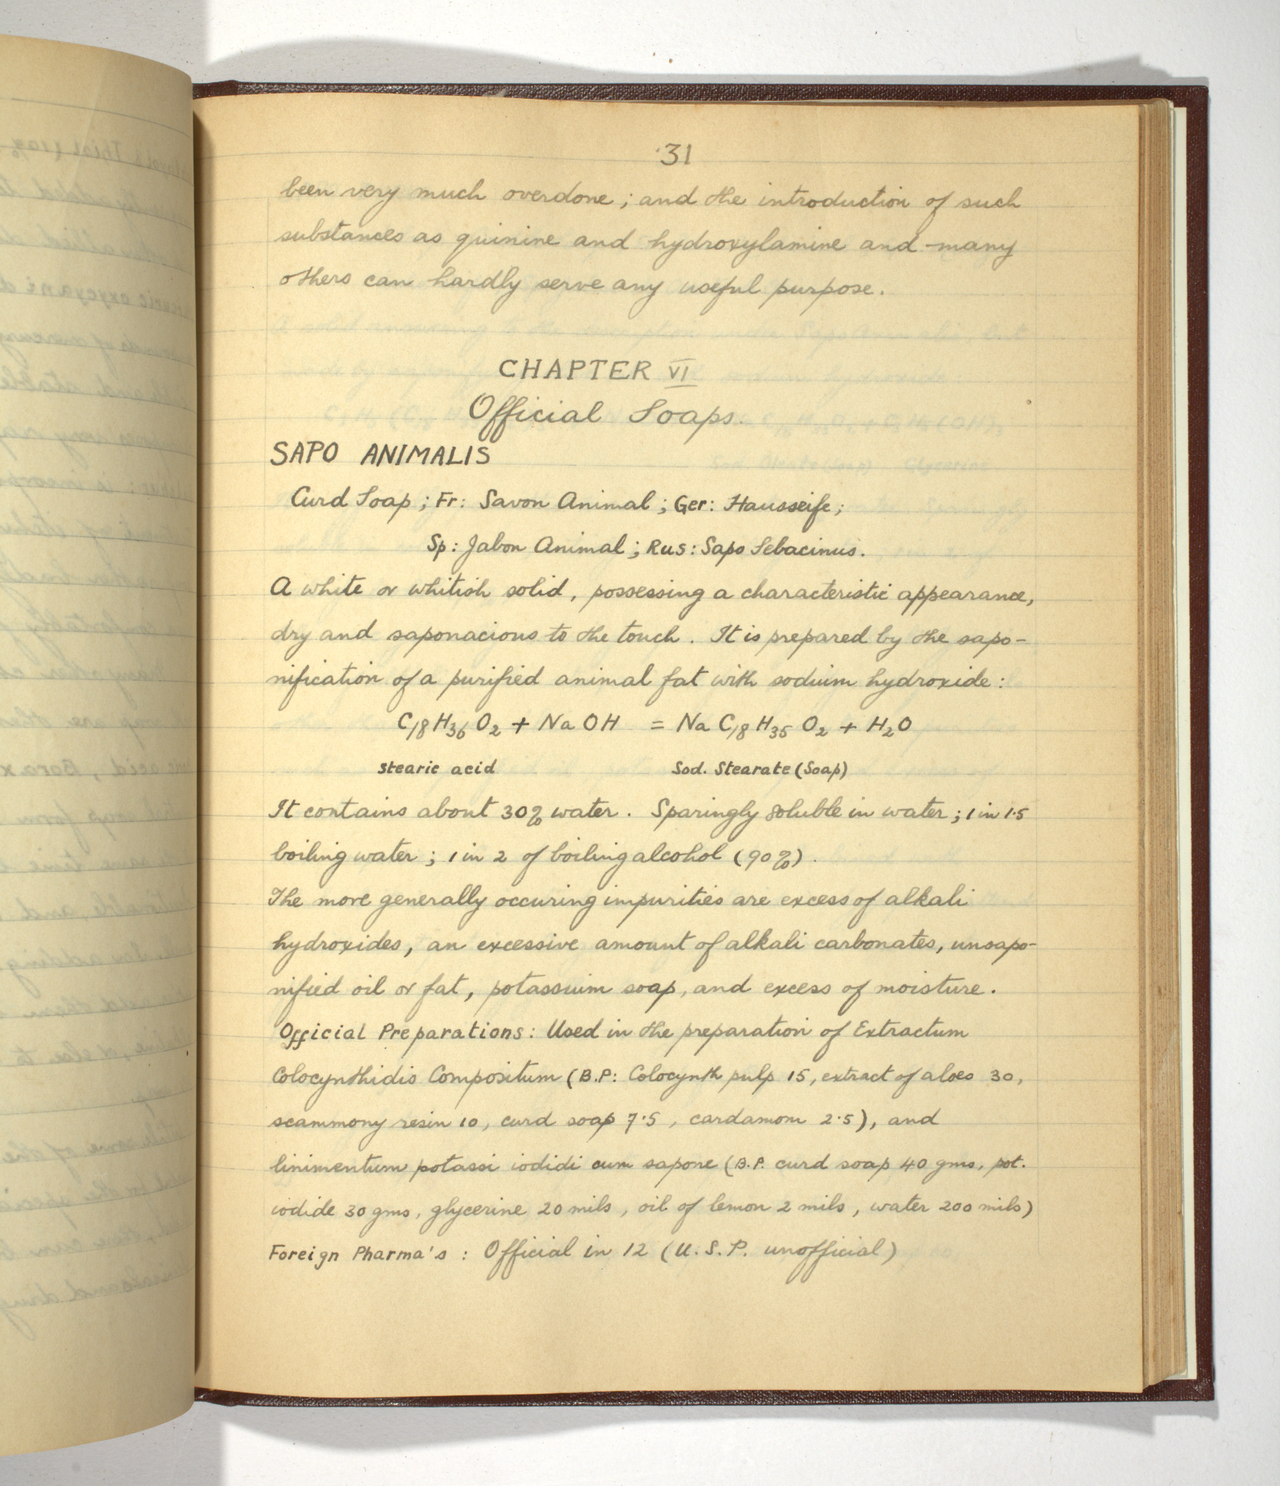 31
been very much overdone; and the introduction of such
substances as quinine and hydroxylamine and many
others can hardly serve any useful purpose.
CHAPTER VI
Official Soaps.
SAPO ANIMALIS
Curd Soap; Fr: Savon Animal; Ger: Hausseife;
Sp: Jabon Animal; Rus: Sapo Sebacinus.
A white or whitish solid, possessing a characteristic appearance,
dry and saponacious to the touch. It is prepared by the sapo-
nification of a purified animal fat with sodium hydroxide:
C₁₈H₃₆O₂ + NaOH = NaC₁₈H₃₅O₂ + H₂O
stearic acid Sod. Stearate (Soap)
It contains about 30% water. Sparingly soluble in water; 1 in 1·5
boiling water; 1 in 2 of boiling alcohol (90%).
The more generally occuring impurities are excess of alkali
hydroxides, an excessive amount of alkali carbonates, unsapo-
nified oil or fat, potassium soap, and excess of moisture.
Official Preparations: Used in the preparation of Extractum
Colocynthidis Compositum (B.P: Colocynth pulp 15, extract of aloes 30,
scammony resin 10, curd soap 7·5, cardamom 2·5), and
linimentum potassi iodidi cum sapone (B.P. curd soap 40 gms, pot.
iodide 30 gms, glycerine 20 mils, oil of lemon 2 mils, water 200 mils)
Foreign Pharma's: Official in 12 (U.S.P. unofficial)